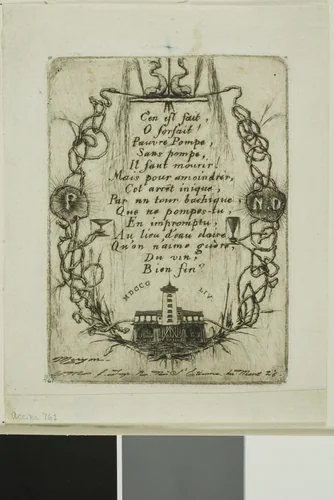 C'en est fait,
O forfait!
Pauvre Pompe,
Sans pompe,
Il faut mourir!
Mais pour amoindrir,
Cet arrêt inique,
Par un tour bachique,
Que ne pompes-tu,
En impromptu,
Au lieu d'eau claire,
Qu'on n'aime guère,
Du vin,
Bien fin?
P
N.D
MDCCC LIV.
Meryon